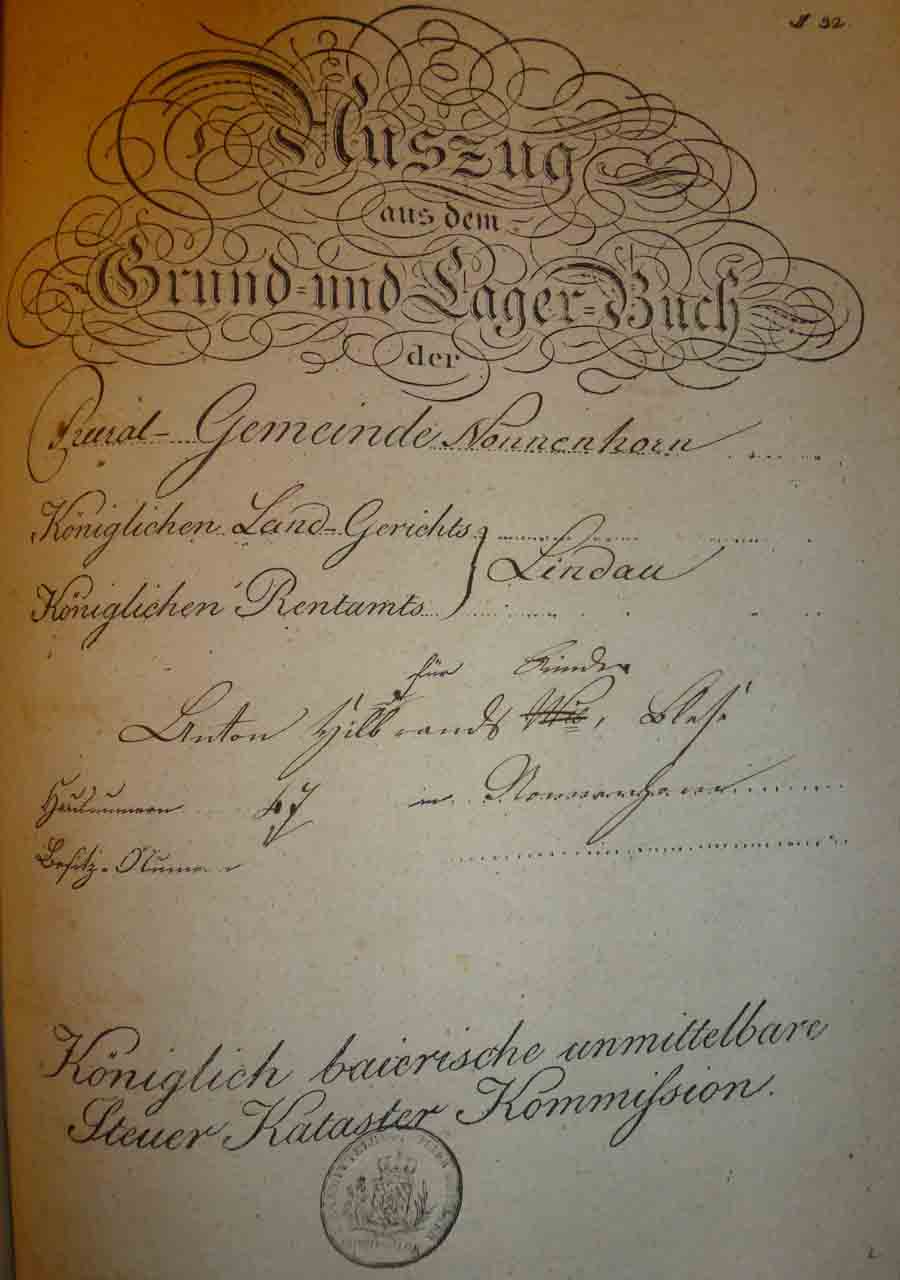 N 92.
Auszug
aus dem
Grund= und Lager=Buch
der
Rural- Gemeinde Nonnenhorn
Königlichen Land-Gerichts
Lindau
Königlichen Rentamts
für Kinder
Anton Hilbrands
Hausnumern 67 in Nonnenhorn
Besitz-Numern
Königlich baierische unmittelbare
Steuer Kataster Kommißion.